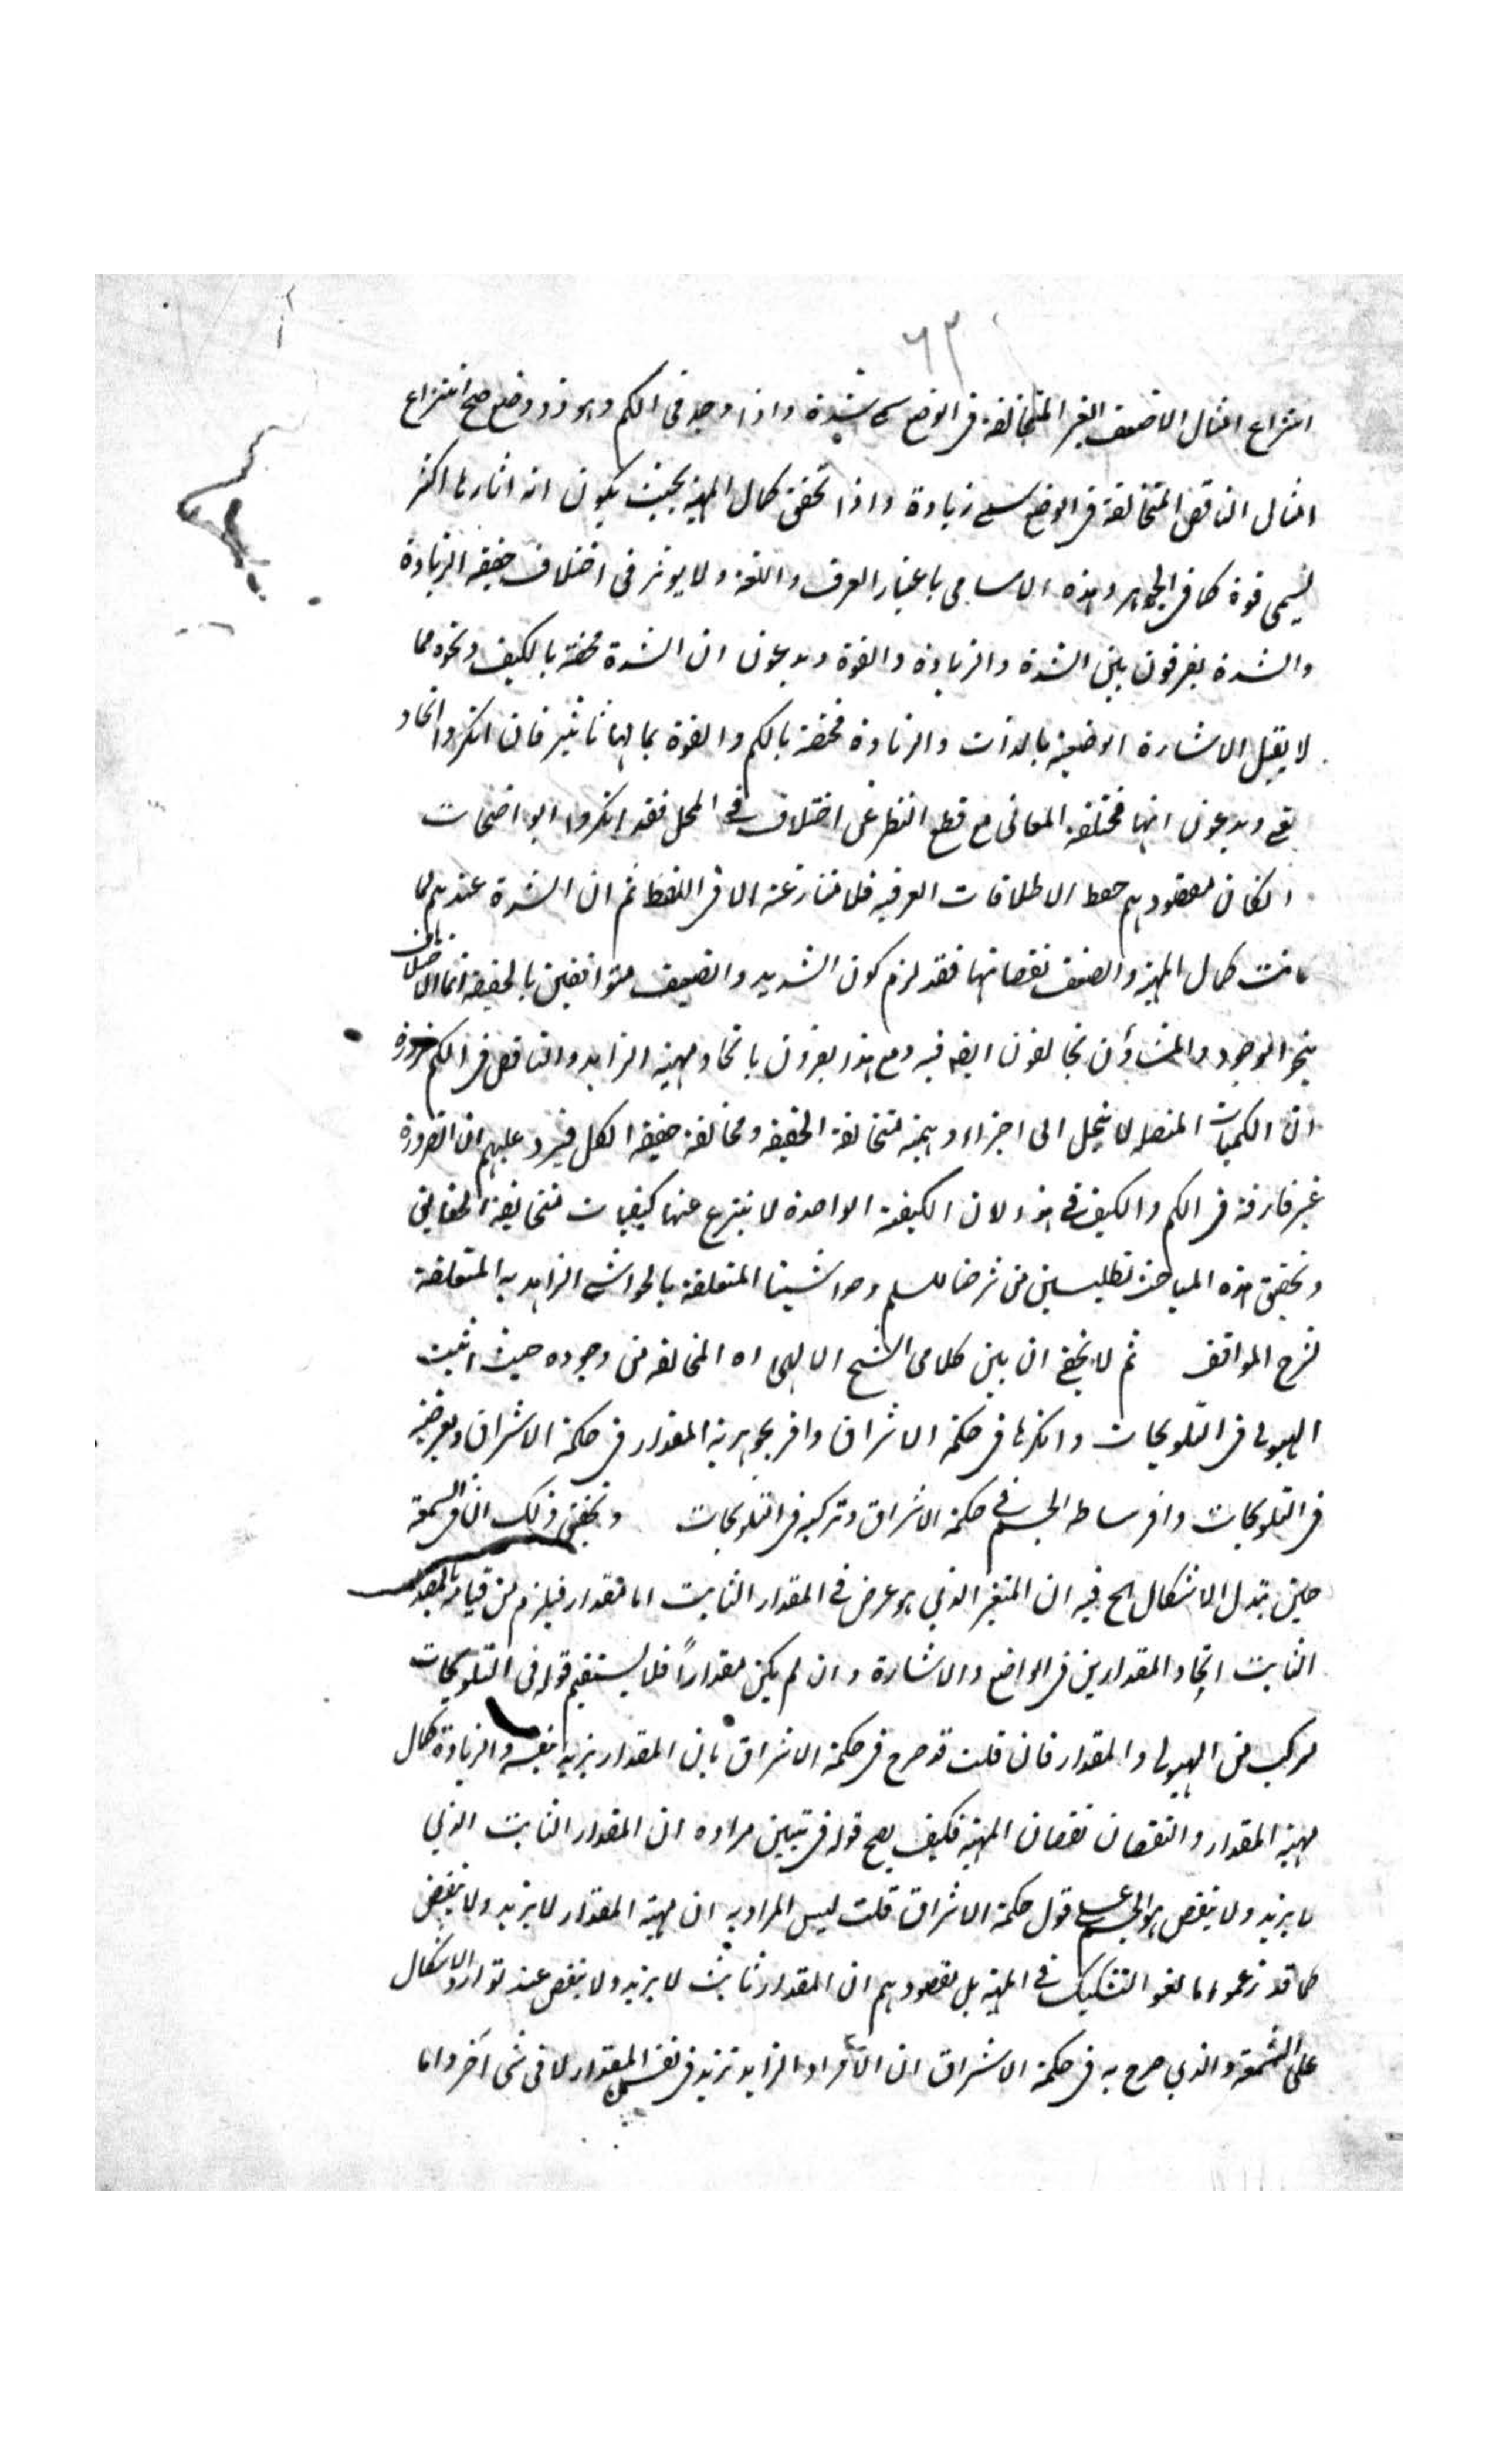 ٦٣
انتزاع امثال الاضعف الغير المتخالفة في الوضع سمي شدة واذا وجد في الكم وهو ذو وضع صح انتزاع
امثال الناقص المتخالفة في الوضع سمي زيادة واذا تحقق كمال المهية بحيث يكون اثارها اكثر
يسمى قوة كما في الجواهر وهذه الاسامي باعتبار العرف واللغة ولا يوثر في اختلاف حقيقة الزيادة
والشدة يفرقون بين الشدة والزيادة والقوة ويدعون ان الشدة مختصة بالكيف ونحوه مما
لا يقبل الاشارة الوضعية بالذات والزيادة مختصة بالكم والقوة بما لها تاثير فان انكروا اتحاد
ويدعون انها مختلفة المعاني مع قطع النظر عن اختلاف في المحل فقد انكروا الواضحات
انكان مقصودهم حفظ الاطلاقات العرفية فلا منازعة الا في اللفظ ثم ان الشدة عندهم لما
كانت كمال المهية والضعف نقصانها فقد لزم كون الشديد والضعيف متوافقين بالحقيقة انما الاختلاف
بنحو الوجود والمشاؤن يخالفون ايضه فيه ومع هذا يقرون باتحاد مهية الزايد والناقص في الكم ضرورة
ان الكميات المتصلة لا ينحل الى اجزاء وهمية متخالفة الحقيقة ومخالفة حقيقة الكل فيرد عليهم ان الضرورة
غير فارقة في الكم والكيف في هذا لان الكيفية الواحدة لا ينتزع عنها كيفيات متخالفة الحقايق
وتحقيق هذه المباحث تطلبين من شرحنا للسلم وحواشينا المتعلقة بالحواشي الزاهدية المتعلقة
لشرح المواقف ثم لا يخفى ان بين كلامي الشيخ الالهي اه المخالفة من وجوده حيث اثبت
الهيولى في التلويحات وانكرها في حكمة الاشراق واقر بجوهرية المقدار في حكمة الاشراق وبعرضية
في التلويحات واقر بساطة الجسم في حكمة الاشراق وتركبه في التلويحات وتحقيق ذلك ان في الشمعة
حين تبدل الاشكال الخ فيه ان المتغير الذي هو عرض في المقدار الثابت اما مقدار فيلزم من قيامه بالمقدار
الثابت اتحاد المقدارين في الوضع والاشارة وان لم يكن مقداراً فلا يستقيم قوله في التلويحات
مركب من الهيولى والمقدار فان قلت قد صرح في حكمة الاشراق بان المقدار يزيد بنفسه والزيادة كمال
مهية المقدار والنقصان نقصان المهية فكيف يصح قوله في تبيين مراده ان المقدار الثابت الذي
لا يزيد ولا ينقص هو الجسم على قول حكمة الاشراق قلت ليس المراد به ان مهية المقدار لا يزيد ولا ينقص
كما قد زعموا التشكيك في المهية بل مقصودهم ان المقدار ثابت لا يزيد ولا ينقص عند توارد الاشكال
على الشمعة والذي صرح به في حكمة الاشراق ان الافراد الزايد تزيد في نفس المقدار لا في شى آخر واما